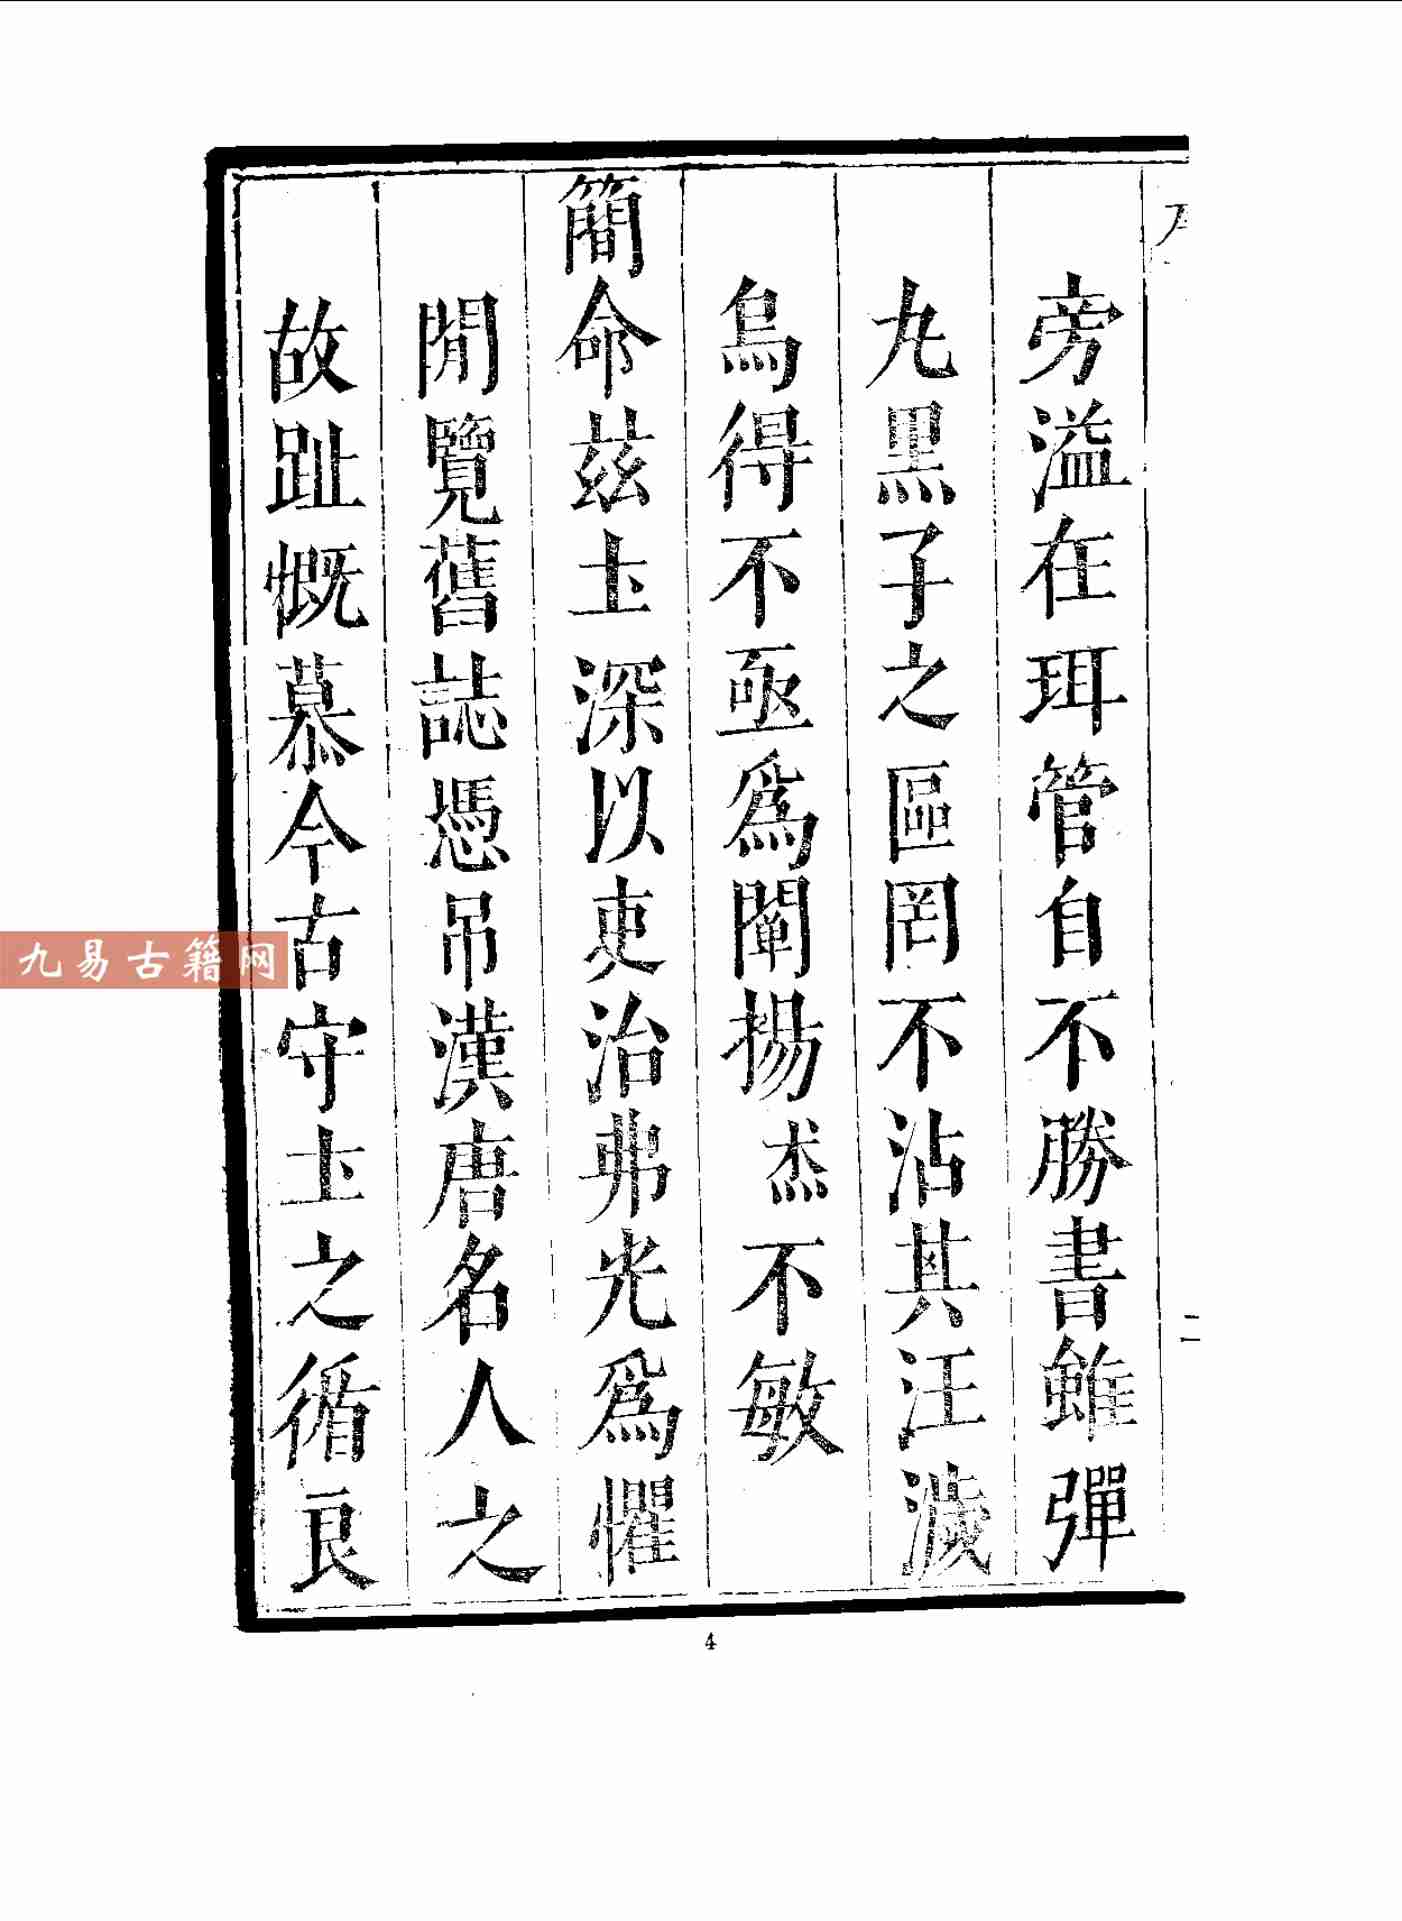 旁溢在珥管自不勝書雖彈
九黑子之區罔不沾其汪濊
烏得不亟爲闡揚杰不敏
簡命兹土深以吏治弗光爲懼
閒覽舊誌憑吊漢唐名人之
故趾慨慕今古守土之循良
二
4
九易古籍网